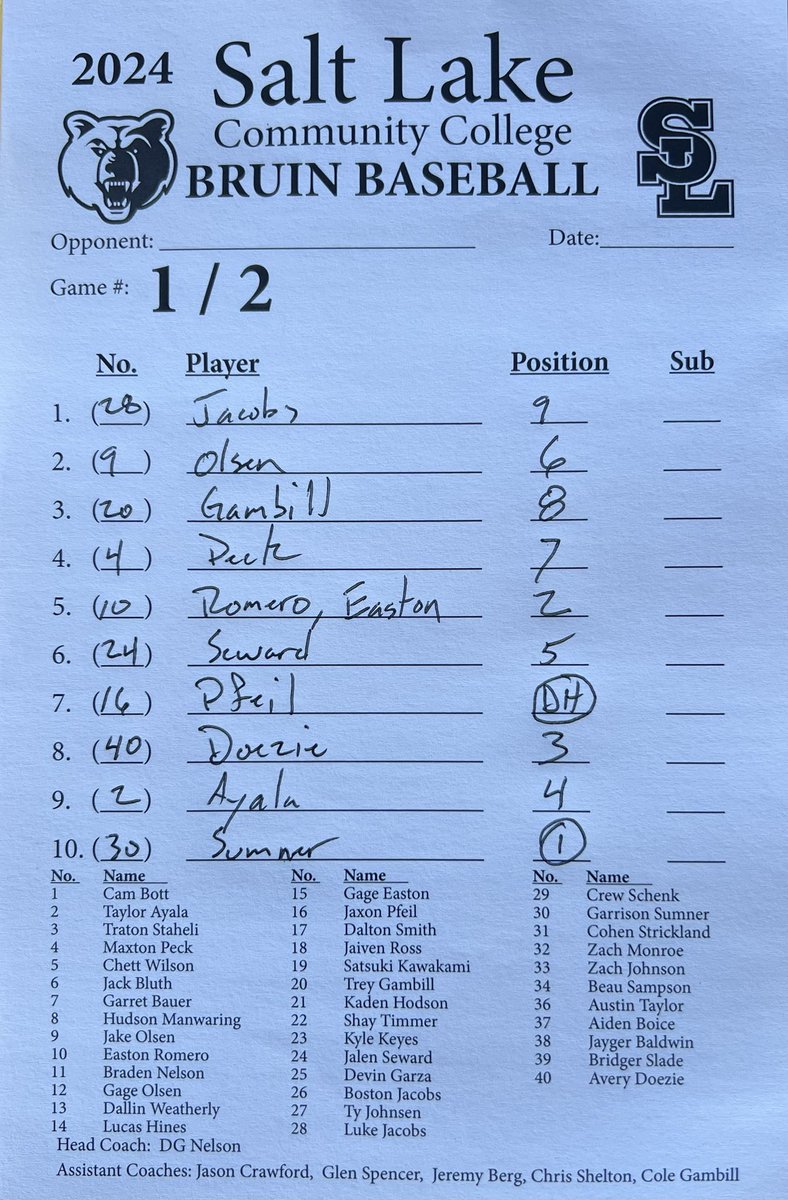 2024 Salt Lake
Community College
BRUIN BASEBALL
SL
Opponent: Date:
Game #: 1 / 2
No. Player Position Sub
1. (28) Jacobs 9
2. (9) Olsen 6
3. (20) Gambill 8
4. (4) Peck 7
5. (10) Romero, Easton 2
6. (24) Seward 5
7. (16) Pfeil DH
8. (40) Doezie 3
9. (2) Ayala 4
10. (30) Sumner 1
No. Name No. Name No. Name
1 Cam Bott 15 Gage Easton 29 Crew Schenk
2 Taylor Ayala 16 Jaxon Pfeil 30 Garrison Sumner
3 Traton Staheli 17 Dalton Smith 31 Cohen Strickland
4 Maxton Peck 18 Jaiven Ross 32 Zach Monroe
5 Chett Wilson 19 Satsuki Kawakami 33 Zach Johnson
6 Jack Bluth 20 Trey Gambill 34 Beau Sampson
7 Garret Bauer 21 Kaden Hodson 36 Austin Taylor
8 Hudson Manwaring 22 Shay Timmer 37 Aiden Boice
9 Jake Olsen 23 Kyle Keyes 38 Jayger Baldwin
10 Easton Romero 24 Jalen Seward 39 Bridger Slade
11 Braden Nelson 25 Devin Garza 40 Avery Doezie
12 Gage Olsen 26 Boston Jacobs
13 Dallin Weatherly 27 Ty Johnsen
14 Lucas Hines 28 Luke Jacobs
Head Coach: DG Nelson
Assistant Coaches: Jason Crawford, Glen Spencer, Jeremy Berg, Chris Shelton, Cole Gambill